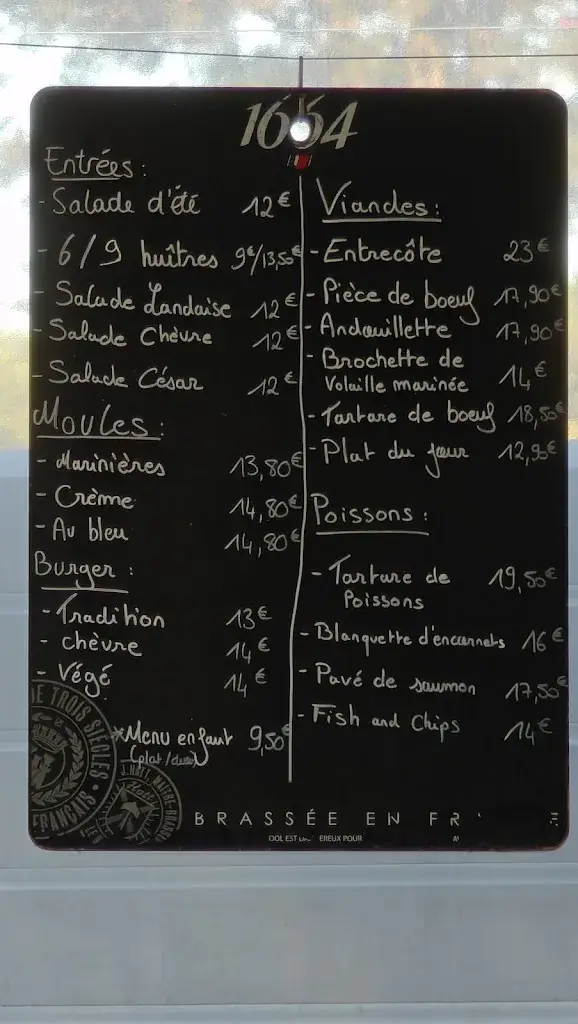 1664
Entrées :
- Salade d'été 12€
- 6/9 huîtres 9€/13,50€
- Salade Landaise 12€
- Salade Chèvre 12€
- Salade César 12€
Moules :
- Marinières 13,80€
- Crème 14,80€
- Au bleu 14,80€
Burger :
- Tradition 13€
- chèvre 14€
- Végé 14€
*Menu enfant 9,50€
(plat/dessert)
Viandes :
- Entrecôte 23€
- Pièce de boeuf 17,90€
- Andouillette 17,90€
- Brochette de
Volaille marinée 14€
- Tartare de boeuf 18,50€
- Plat du jour 12,90€
Poissons :
- Tartare de 19,50€
Poissons
- Blanquette d'encornets 16€
- Pavé de saumon 17,50€
- Fish and Chips 14€
DE TROIS SIÈCLES
FRANÇAIS
J. HATT, MAITRE-BRASS
BRASSÉE EN FR
OOL EST EREUX POUR